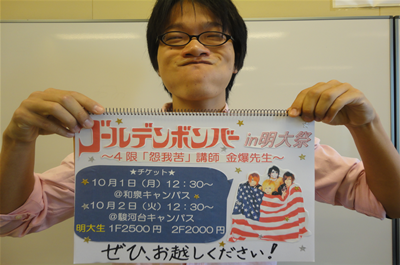 ゴールデンボンバー in 明大祭
～4限「怨我苦」講師 金爆先生～
★チケット★
10月1日（月）12：30～
＠和泉キャンパス
10月2日（火）12：30～
＠駿河台キャンパス
明大生 1F2500円 2F2000円
ぜひ、お越しください！